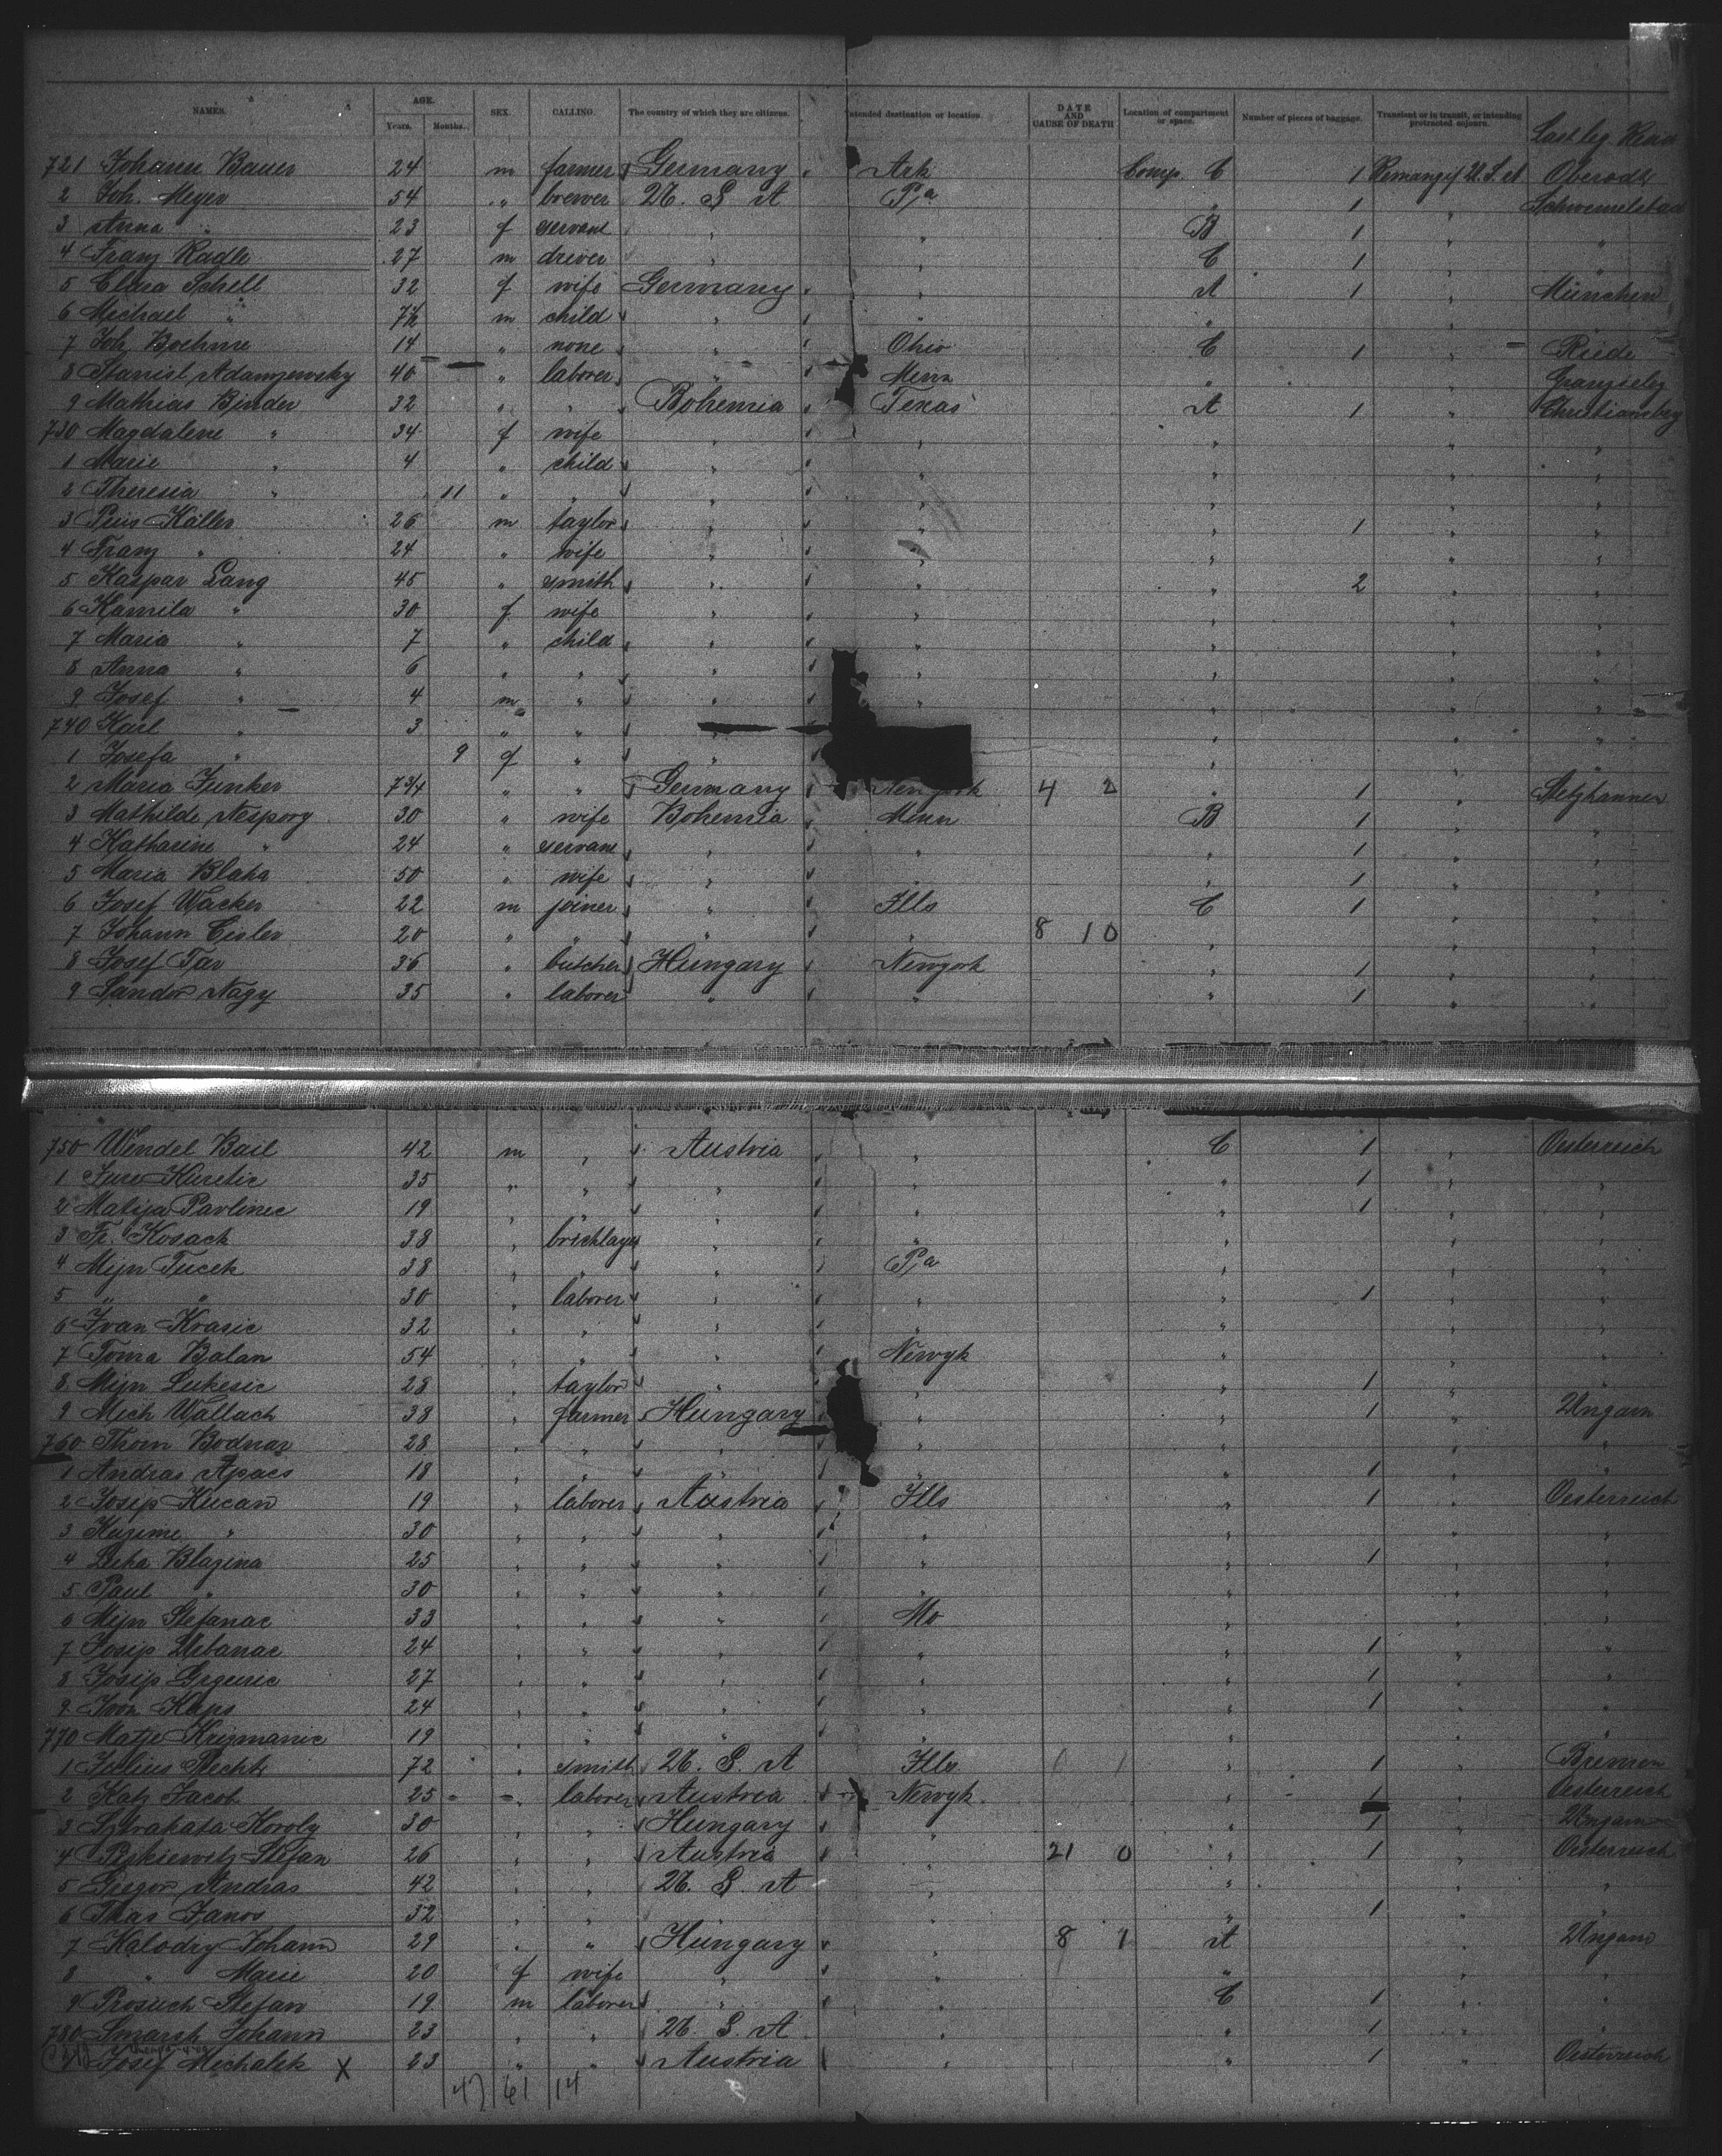 NAMES. AGE. Years. Months. SEX. CALLING. The country of which they are citizens. Intended destination or location. DATE AND CAUSE OF DEATH Location of compartment or space. Number of pieces of baggage. Transient or in transit, or intending protracted sojourn. Last leg.
721 Johann Bauer 24 m farmer Germany Ark Comp. C 1 U.S.A
2 Joh. Meyer 54 " brewer U. S A Pa " 1 "
3 Anna " 23 f servant " " B 1 " "
4 Franz Radler 27 m driver " " C 1 " "
5 Clara Schell 32 f wife Germany " A 1 " München
6 Michael " 7½ m child " " "
7 Joh. Boehme 14 " none " Ohio C 1 " Riede
8 Stanisl Adamzewsky 40 " laborer " Minn " "
9 Mathias Binder 32 " " Bohemia Texas A 1 " Christiansbrg
730 Magdalene " 34 f wife " " " " "
1 Marie " 4 " child " " " " "
2 Theresia " 11 " " " " " " "
3 Pius Köller 26 m taylor " " " 1 " "
4 Franz " 24 " wife " " " " "
5 Kaspar Lang 45 " smith " " " 2 " "
6 Kamila " 30 f wife " " " " "
7 Maria " 7 " child " " " " "
8 Anna " 6 " " " " " " "
9 Josef " 4 m " " " " " "
740 Karl " 3 " " " " " "
1 Josefa " 9 f " " " " "
2 Maria Junker 7 3/4 " " Germany Newyork 4 2 " 1 "
3 Mathilde Nespory 30 " wife Bohemia Minn B 1 " "
4 Katharine " 24 " servant " " " 1 " "
5 Maria Blaha 50 " wife " " " 1 " "
6 Josef Wacker 22 m joiner " Ills C 1 " "
7 Johann Cisler 20 " " " " 8 10 " " "
8 Josef Tar 36 " butcher Hungary Newyork " 1 " "
9 Sandor Nagy 35 " laborer " " " 1 " "
750 Wendel Bail 42 m " Austria " C 1 " Oesterreich
1 Jure Kuretic 35 " " " " " 1 " "
2 Matija Pavlinec 19 " " " " " 1 " "
3 Fr. Kosack 38 " bricklayer " " " " "
4 Mijn Tucek 38 " " " Pa " " "
5 " " 30 " laborer " " " 1 " "
6 Ivan Krasic 32 " " " " " " "
7 Toma Balan 54 " " " Newyk " " "
8 Mijn Lukesic 28 " taylor " " " 1 " "
9 Mich Wallach 38 " farmer Hungary " " 1 " Ungarn
760 Thom Bodnar 28 " " " " " " "
1 Andras Apacs 18 " " " " " 1 " "
2 Josip Kucan 19 " laborer Austria Ills " 1 " Oesterreich
3 Kuzime " 30 " " " " " " "
4 Luka Blazina 25 " " " " " 1 " "
5 Paul " 30 " " " " " " "
6 Mijn Stefanac 33 " " " Mo " " "
7 Josip Urbanac 24 " " " " " 1 " "
8 Josip Grguric 27 " " " " " 1 " "
9 Ivon Kaps 24 " " " " " 1 " "
770 Matje Krizmanic 19 " " " " " " "
1 Julius Hecht 72 " smith U. S. A Ills 1 1 " 1 " Bremen
2 Katz Jacob 25 " laborer Austria Newyk " 1 " Oesterreich
3 Koroly 30 " " Hungary " " 1 " Ungarn
4 Stefan 26 " " Austria " 21 0 " 1 " Oesterreich
5 Gregor Andras 42 " " U. S. A " " " "
6 Janos 32 " " " " " 1 " "
7 Kalodzy Johann 29 " " Hungary " 8 1 A " Ungarn
8 " Marie 20 f wife " " " " "
9 Prosuch Stefan 19 m laborer " " C 1 " "
780 Smarsh Johann 23 " " U. S. A " " 1 " "
1 Josef Mechalek X 23 " " Austria " " 1 " Oesterreich
47 61 14